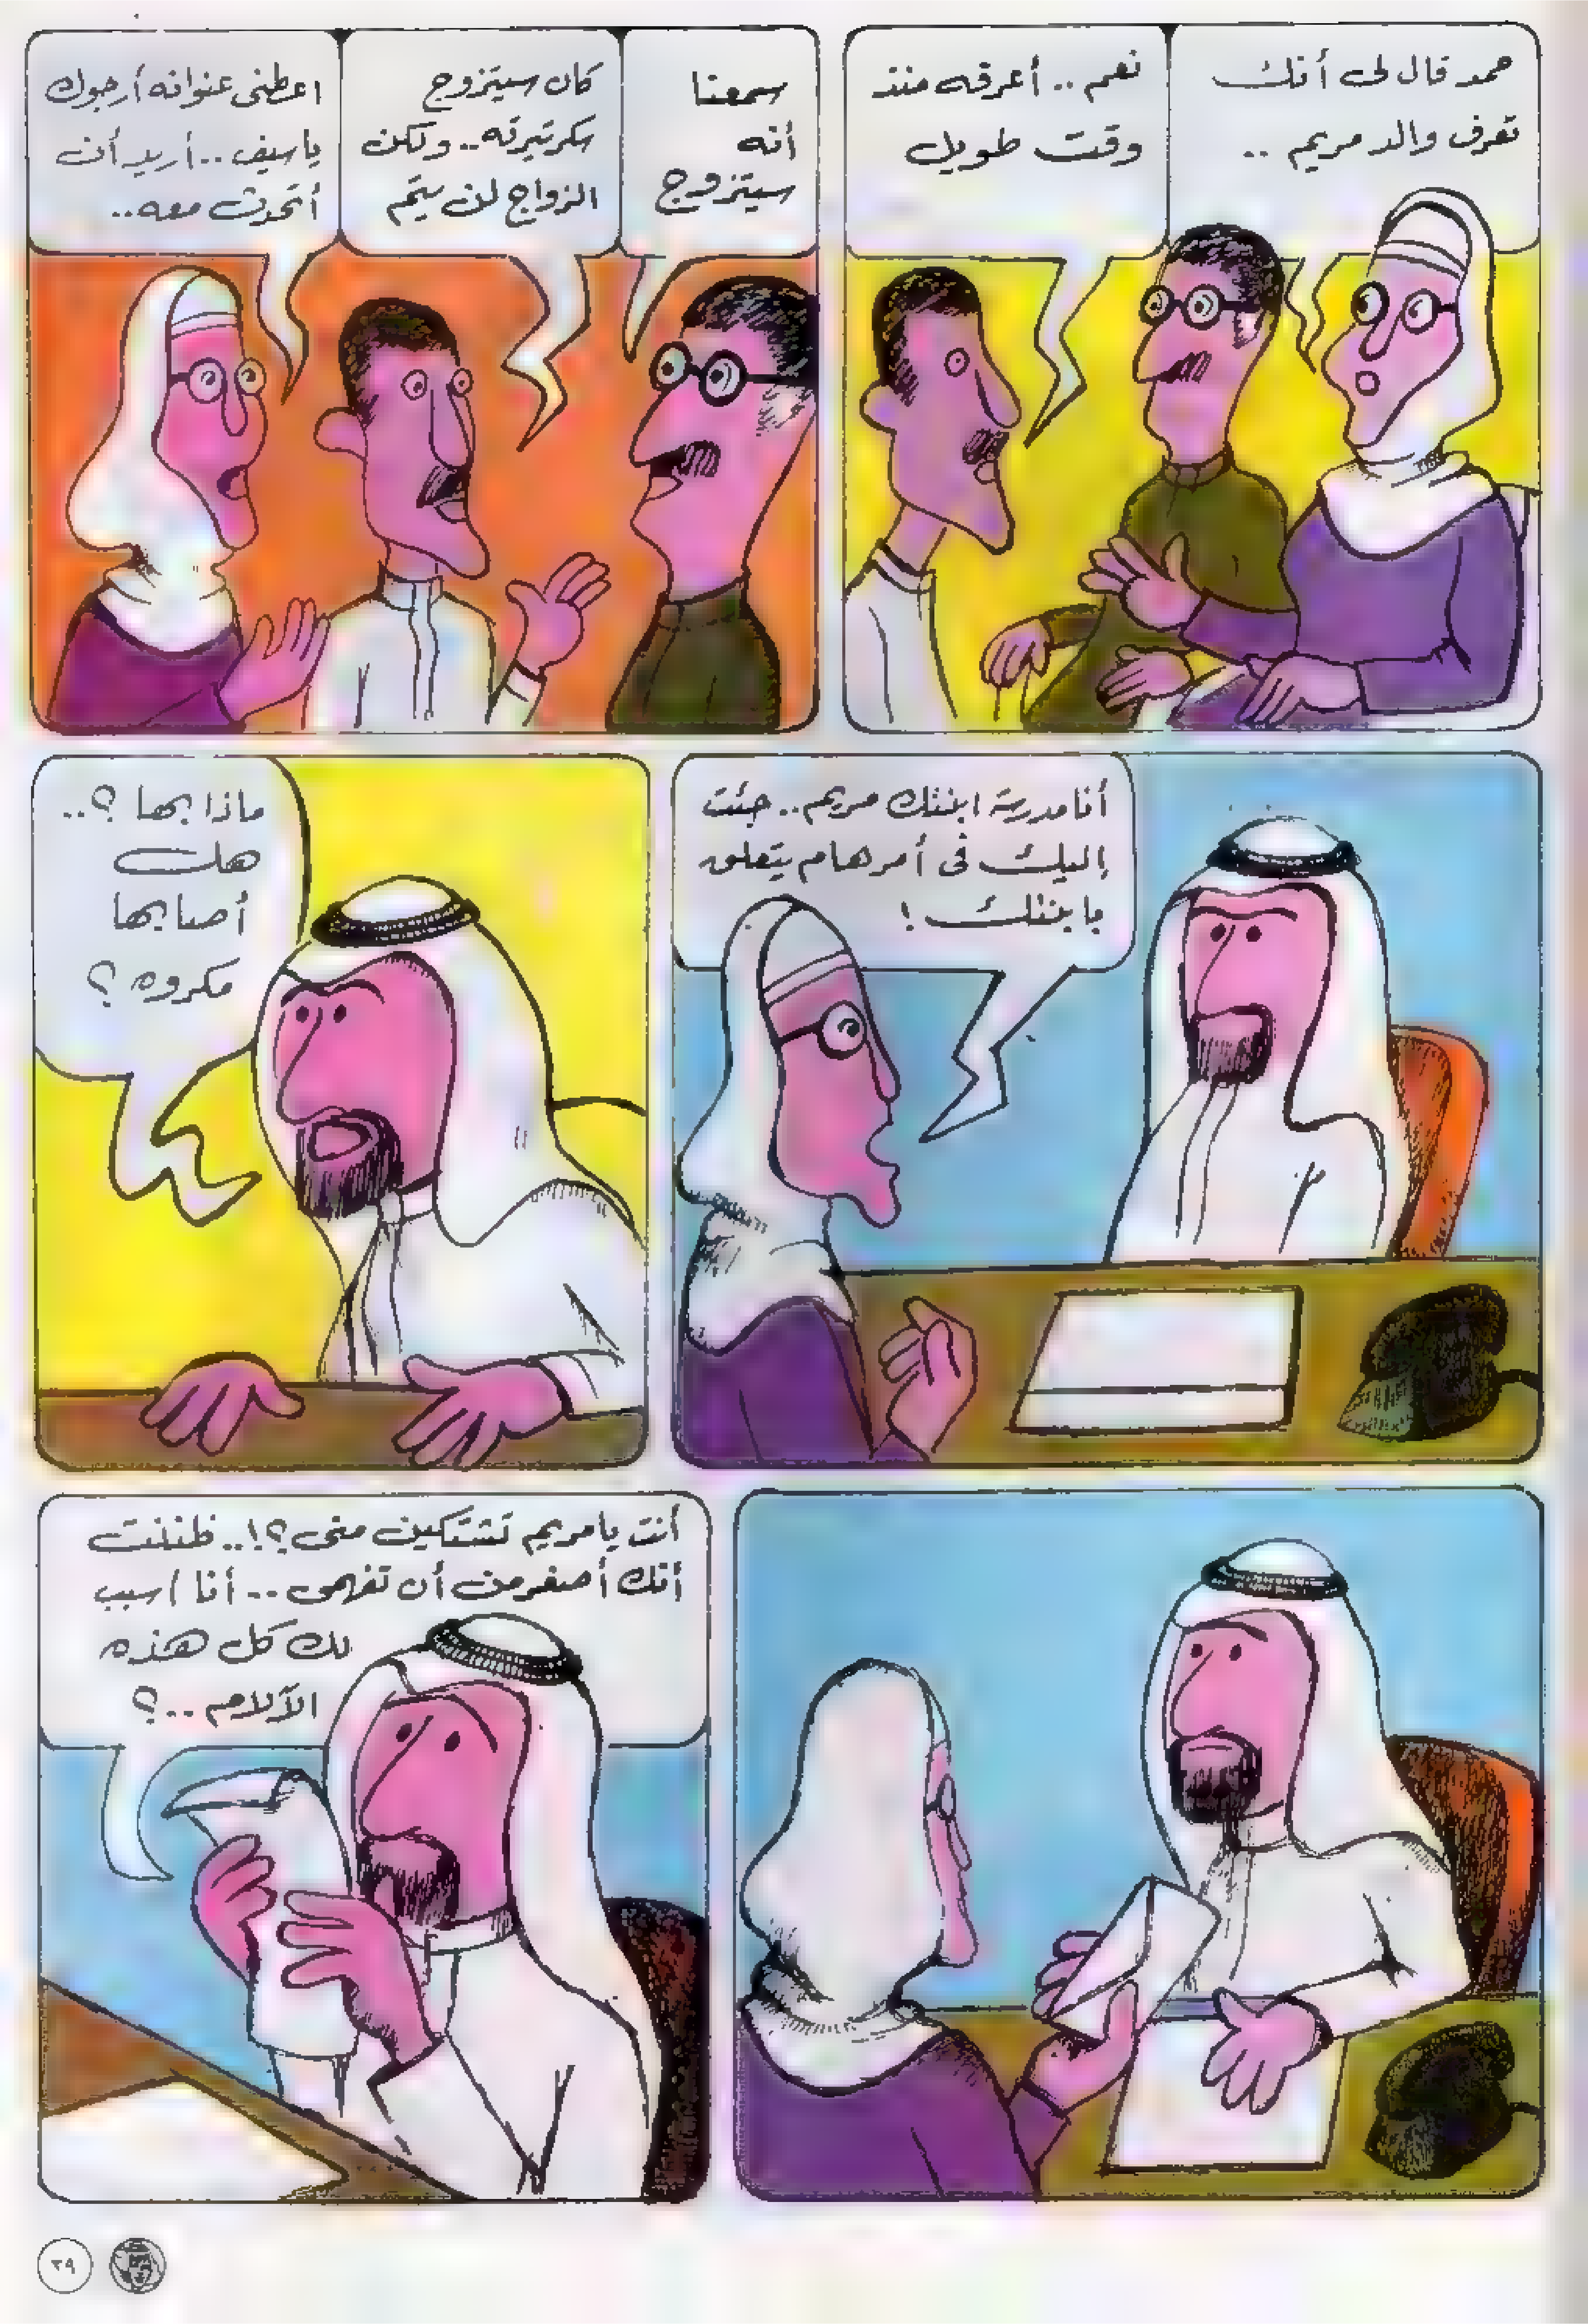 حمد قال لى أنك
تعرف والد مريم ..
نعم .. أعرفه منذ
وقت طويل
سمعنا
أنه
سيتزوج
كان سيتزوج
سكرتيرته .. ولكن
الزواج لن يتم
اعطنى عنوانه أرجوك
ياسيف .. أريد أن
أتحدث معه ..
أنا مدرسة ابنتك مريم .. جئت
إليك فى أمر هام يتعلق
بابنتك !
ماذا بها ؟ ..
هل
أصابها
مكروه ؟
أنت يامريم تشتكين منى ؟! .. ظننت
أنك أصغر من أن تفهمى .. أنا اسبب
لك كل هذه
الآلام .. ؟
٣٩